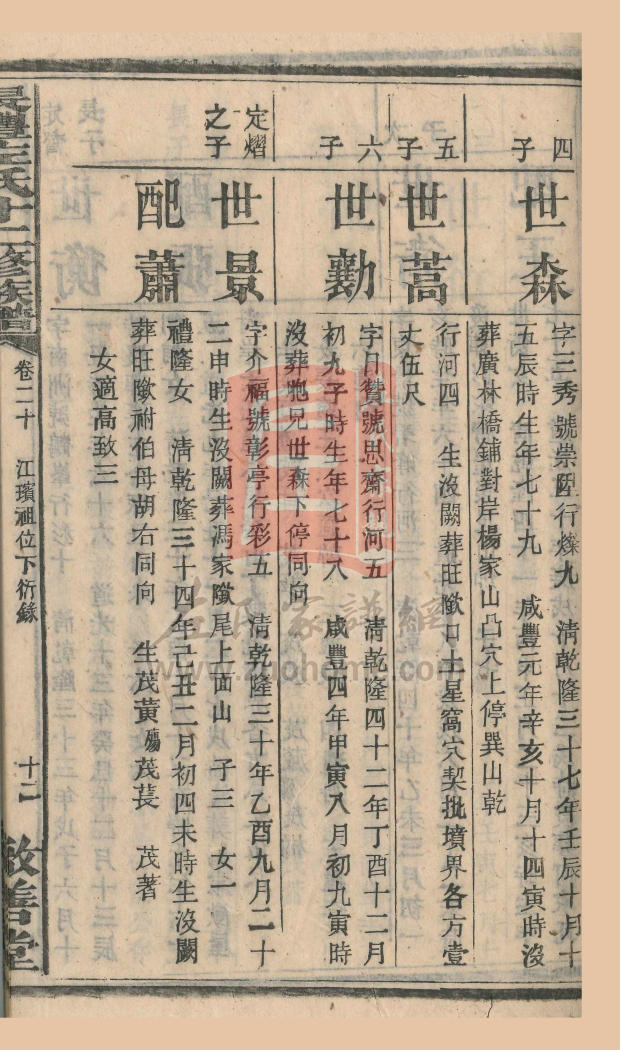 四子
世森
字三秀號崇陞行燦九 清乾隆三十七年壬辰十月十
五辰時生年七十九 咸豐元年辛亥十月十四寅時沒
葬廣林橋鋪對岸楊家山凸穴上停巽山乾
五子
世蒿
行河四 生沒闕葬旺歘口土星窩穴契批墳界各方壹
丈伍尺
六子
世勷
字月贊號思齋行河五 清乾隆四十二年丁酉十二月
初九子時生年七十八 咸豐四年甲寅八月初九寅時
沒葬胞兄世森下停同向
定熠之子
世景
字介福號彰亭行彩五 清乾隆三十年乙酉九月二十
二申時生沒闕葬馮家歘尾上面山 子三 女一
配蕭
禮隆女 清乾隆三十四年己丑二月初四未時生沒闕
葬旺歘祔伯母胡右同向 生茂黃殤茂萇 茂著
女適高致三
左氏十二修族譜
卷二十 江璸祖位下衍錄
十二 敬善堂
左氏家譜網
www.zuohome.com